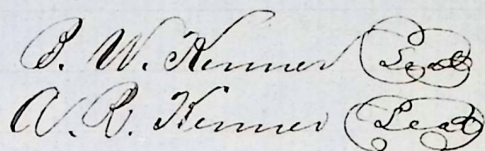 B. W. Kenner Seal
A. R. Kenner Seal